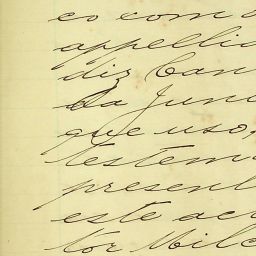 co com
appellid
diz Can
da Jun
que uso,
testem
present
este ac
tor Milc